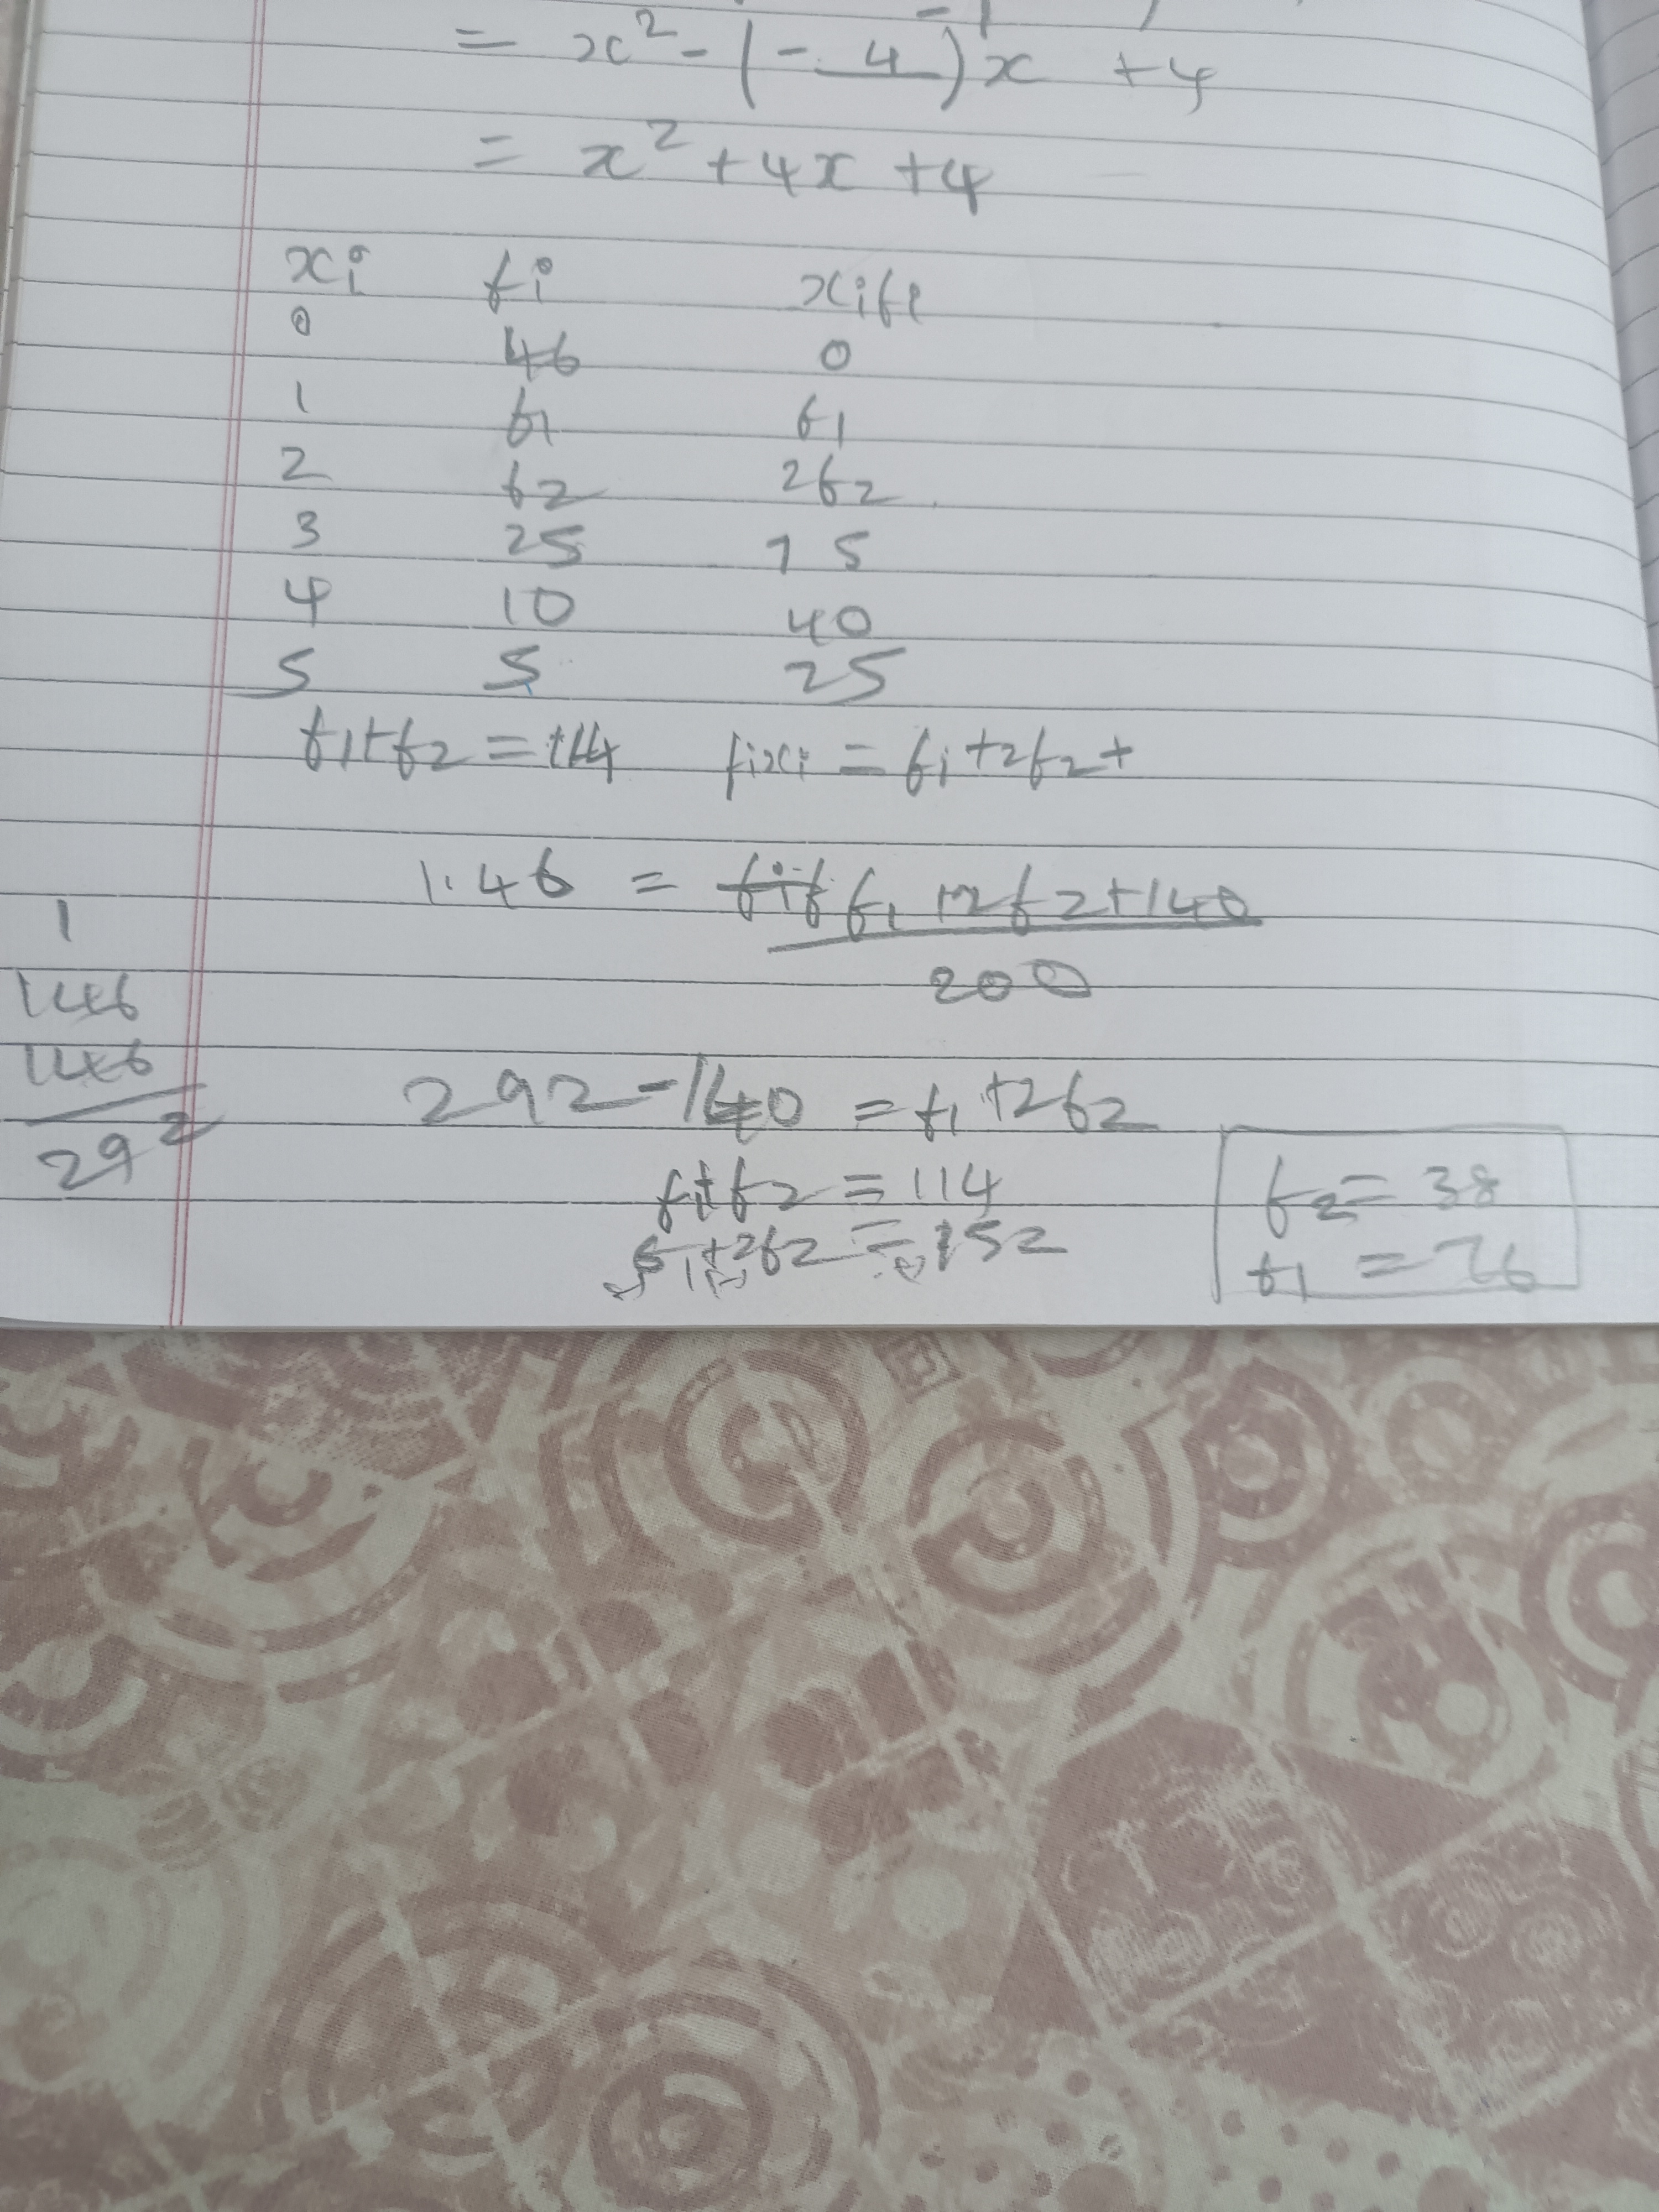 = x² - (-4)x + 4
= x² + 4x + 4
xi fi xifi
0 46 0
1 f1 f1
2 f2 2f2
3 25 75
4 10 40
5 5 25
f1+f2 = 114 fixi = f1+2f2+
1.46 = f1+2f2+140
200
1
146
146
292
292-140 = f1+2f2
f1+f2 = 114
f1+2f2 = 152
f2 = 38
f1 = 76